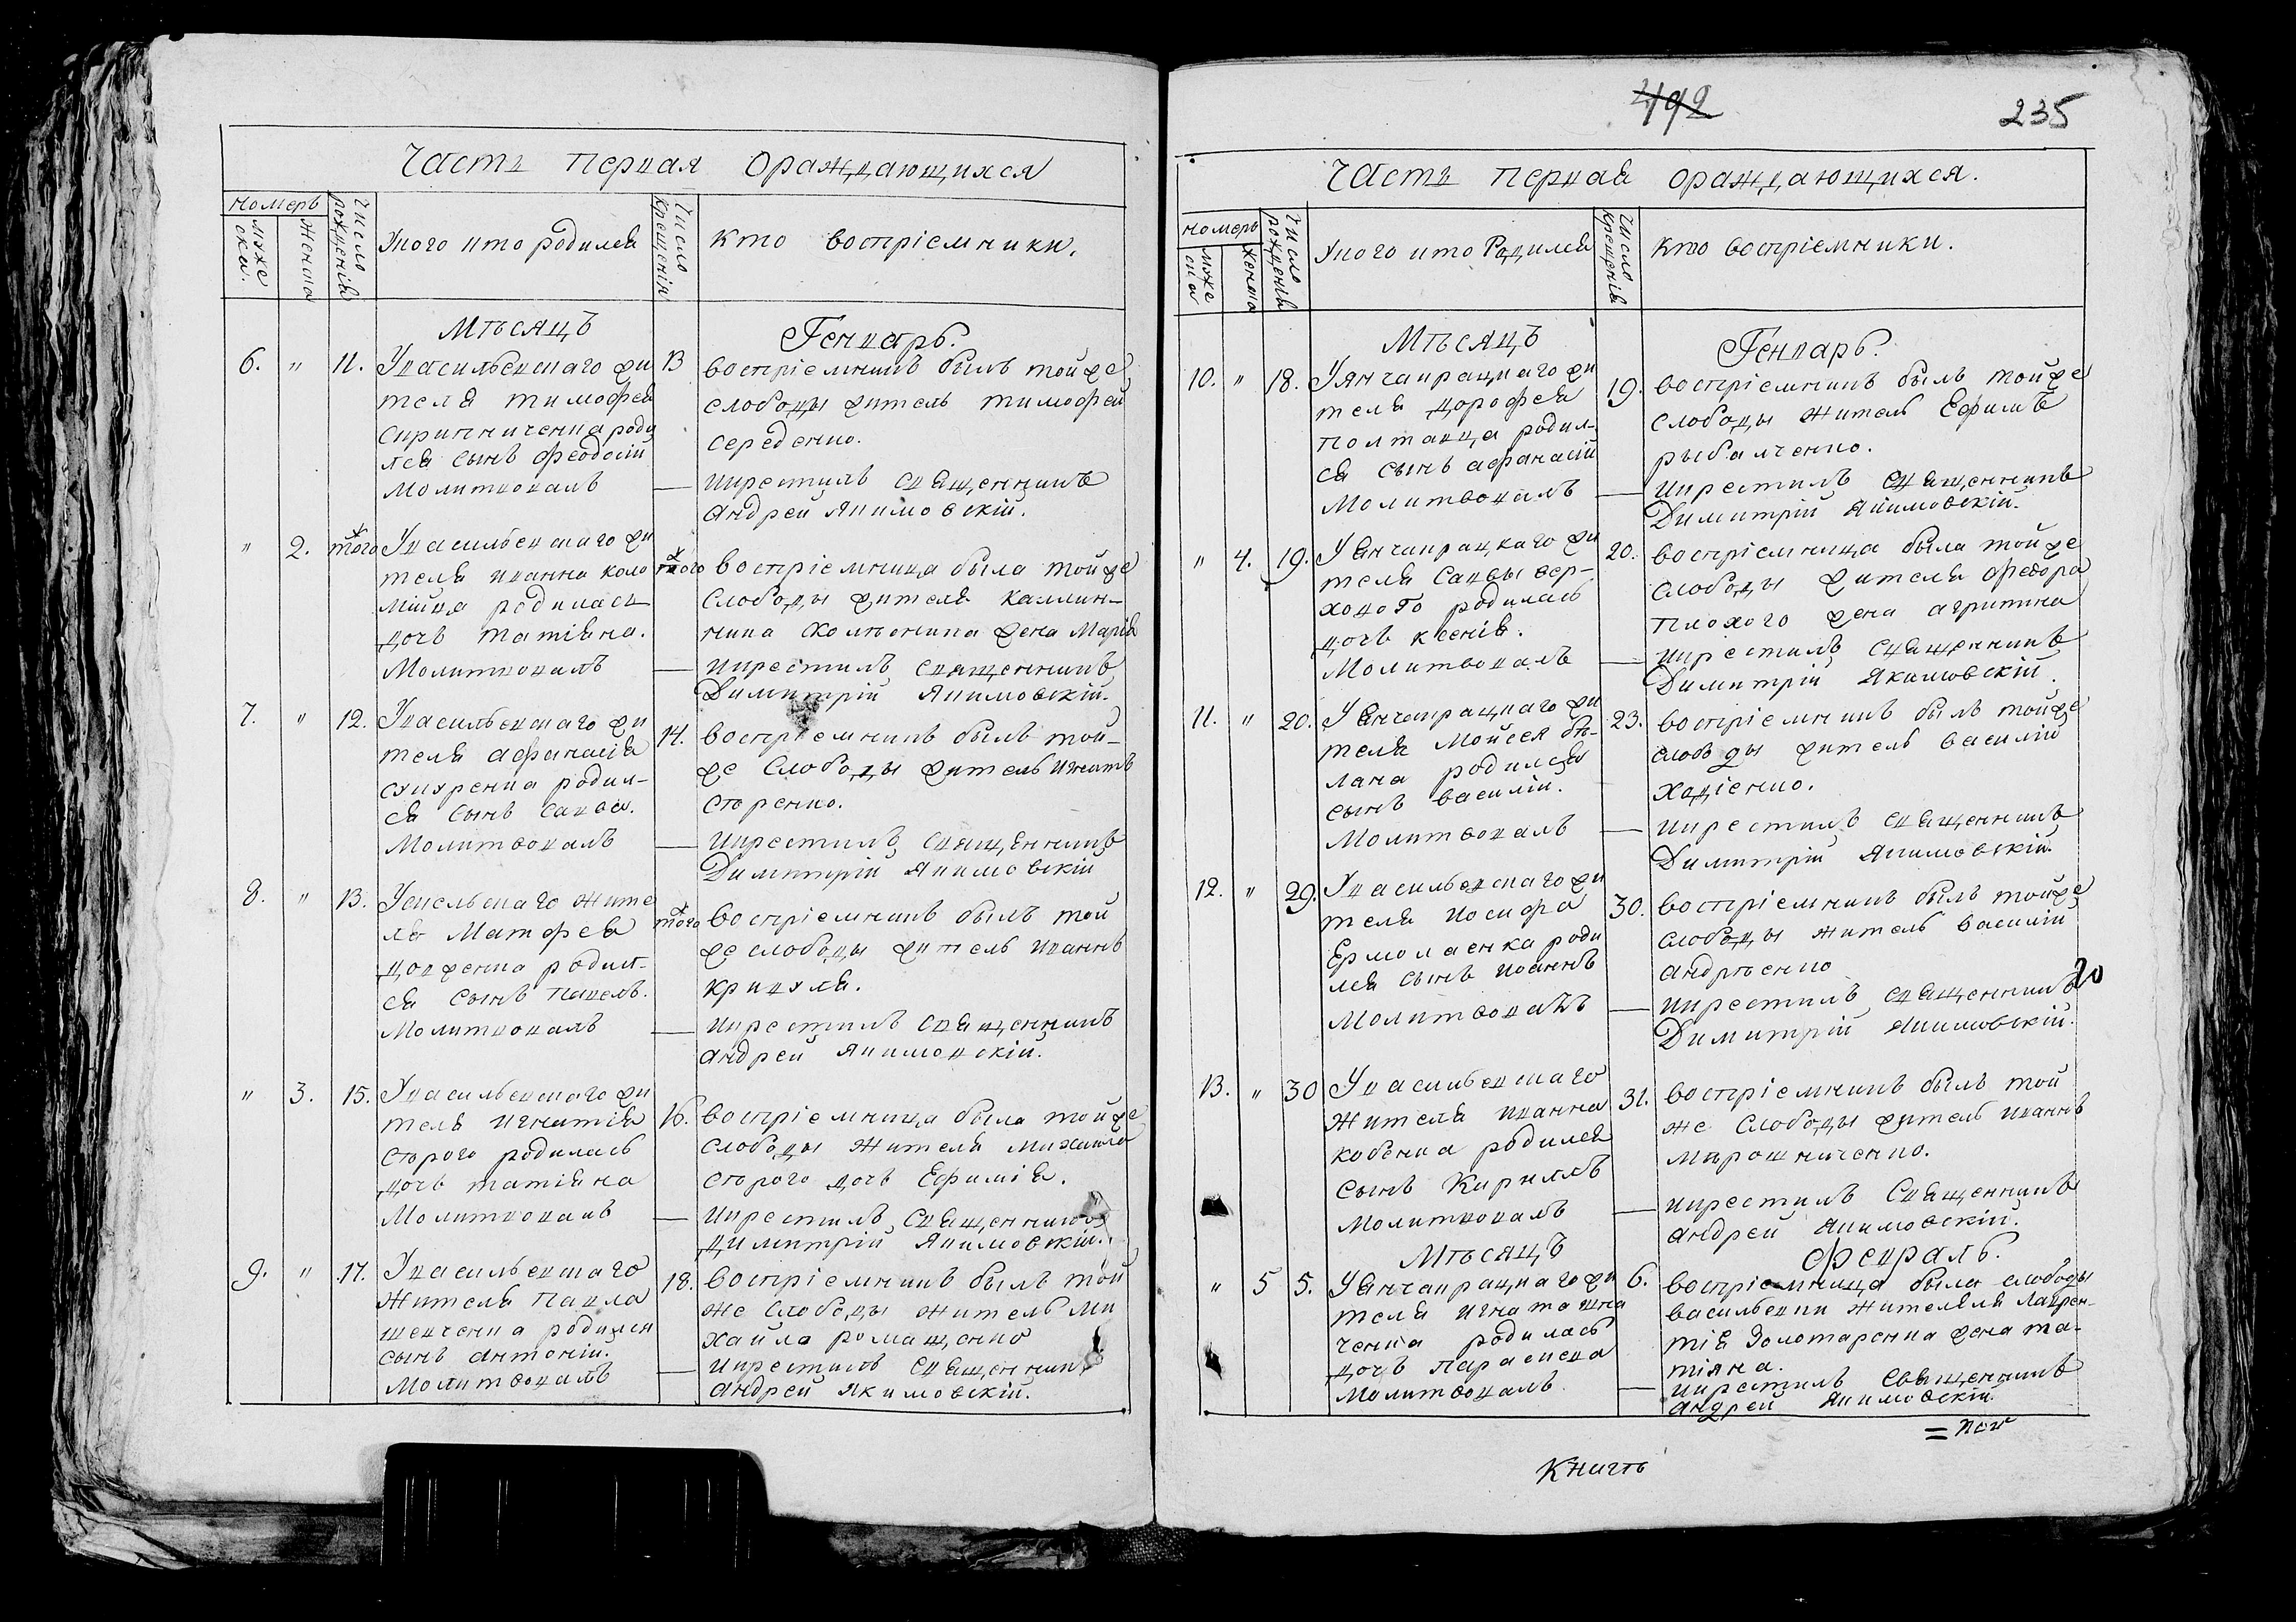 Часть первая ораждающихся
номеръ
мужеска.
женска
Число рожденія
Укого кто родился
Число крещенія
кто воспріемники.
Мѣсяцъ
Генварь.
6. „ 11. Увасильевскаго жи
теля тимофея
скрипниченка роди
лся сынъ феодосій
молитвовалъ
13 воспріемникъ былъ тойже
слободы житель тимофей
середенко.
— икрестилъ священникъ
андрей якимовскій.
„ 2. того Увасильевскаго жи
теля иванна коло
мійца родилась
дочь татіяна.
Молитвовалъ
того воспріемница была тойже
слободы жителя
жена Марія
— икрестилъ священникъ
Димитрій якимовскій.
7. „ 12. Увасильевскаго жи
теля афанасія
родил-
ся сынъ савва.
Молитвовалъ
14. воспріемникъ былъ той-
же слободы житель игнатъ
сторенко.
— икрестилъ священникъ
Димитрій якимовскій
8. „ 13. жите
ля Матфея
довженка родил-
ся сынъ павелъ.
Молитвовалъ
того воспріемникъ былъ той
же слободы житель иваннъ
кривуля.
— икрестилъ священникъ
андрей якимовскій.
„ 3. 15. Увасильевскаго жи
теля игнатія
старого родилась
дочь татіяна
Молитвовалъ
16. воспріемница была тойже
слободы жителя михаила
старого дочь Ефимія.
— икрестилъ священникъ
димитрій якимовскій.
9. „ 17. Увасильевскаго
жителя павла
шевченка родился
сынъ антоній.
Молитвовалъ
18. воспріемникъ былъ той
же слободы житель ми
хайло ромащенко
— икрестилъ священникъ
андрей якимовскій.
492
235
Часть первая ораждающихся.
номеръ
мужеска
женска
Число рожденія
Укого кто Родился
Число крещенія
кто воспріемники.
Мѣсяцъ
Генварь.
10. „ 18. Уянчаирацкаго жи
теля дорофея
полтавца родил-
ся сынъ афанасій
Молитвовалъ
19. воспріемникъ былъ тойже
слободы житель Ефимъ
рыбалченко.
— икрестилъ священникъ
Димитрій якимовскій.
„ 4. 19. Уянчаирацкаго жи
теля саввы вер-
хового родилась
дочь ксенія.
Молитвовалъ
20. воспріемница была тойже
слободы жителя федора
плохого жена агрипина
— икрестилъ священникъ
Димитрій якимовскій.
11. „ 20. Уянчаирацкаго жи
теля Мойсея бѣ-
лана родился
сынъ василій.
Молитвовалъ
23. воспріемникъ былъ тойже
слободы житель василій
хадіенко.
— икрестилъ священникъ
Димитрій якимовскій.
12. „ 29. Увасильевскаго жи
теля иосифа
Ермолаенка роди
лся сынъ иоаннъ
Молитвовалъ
30. воспріемникъ былъ тойже
слободы житель василій
андрѣенко
— икрестилъ священникъ
Димитрій якимовскій.
20
13. „ 30 Увасильевскаго
жителя иванна
кобенка родился
сынъ Кириллъ
молитвовалъ
31. воспріемникъ былъ той
же слободы житель иваннъ
мирошниченко.
— икрестилъ священникъ
андрей якимовскій.
Мѣсяцъ
февраль.
„ 5 5. Уянчаирацкаго жи
теля игната
ченка родилась
дочь параскева
молитвовалъ.
6. воспріемница была слободы
васильевки жителя Лаврен-
тія золотаренка жена та-
тіяна.
— икрестилъ священникъ
андрей якимовскій.
Книгѣ